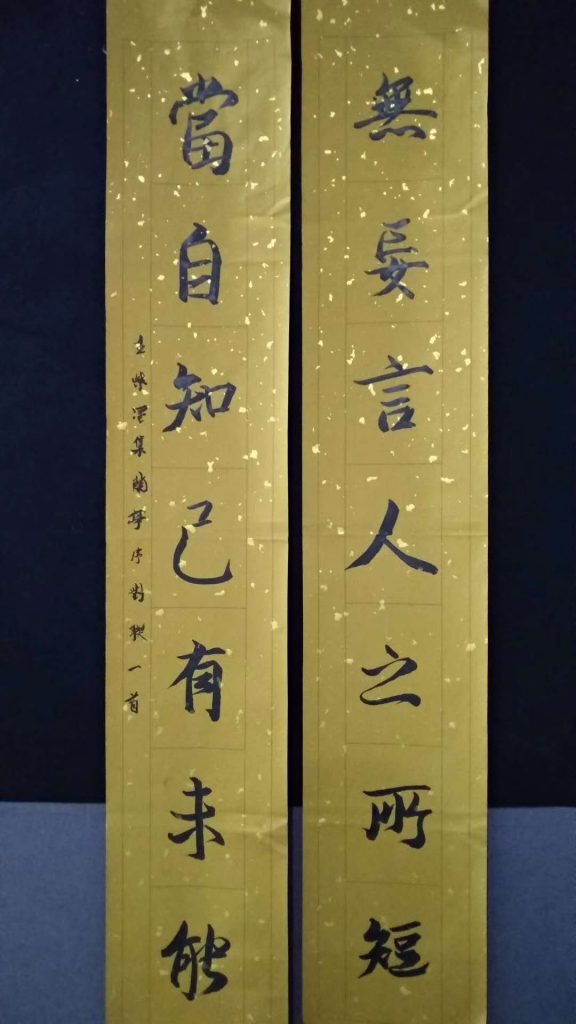 無妄言人之所短
當自知己有未能
集蘭亭序對聯一首